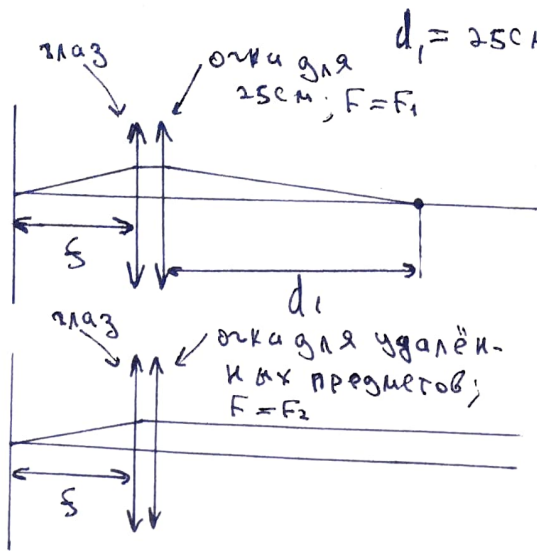 d₁ = 25см
глаз
очки для
25см; F = F₁
f
d₁
глаз
очки для удалён-
ных предметов;
F = F₂
f